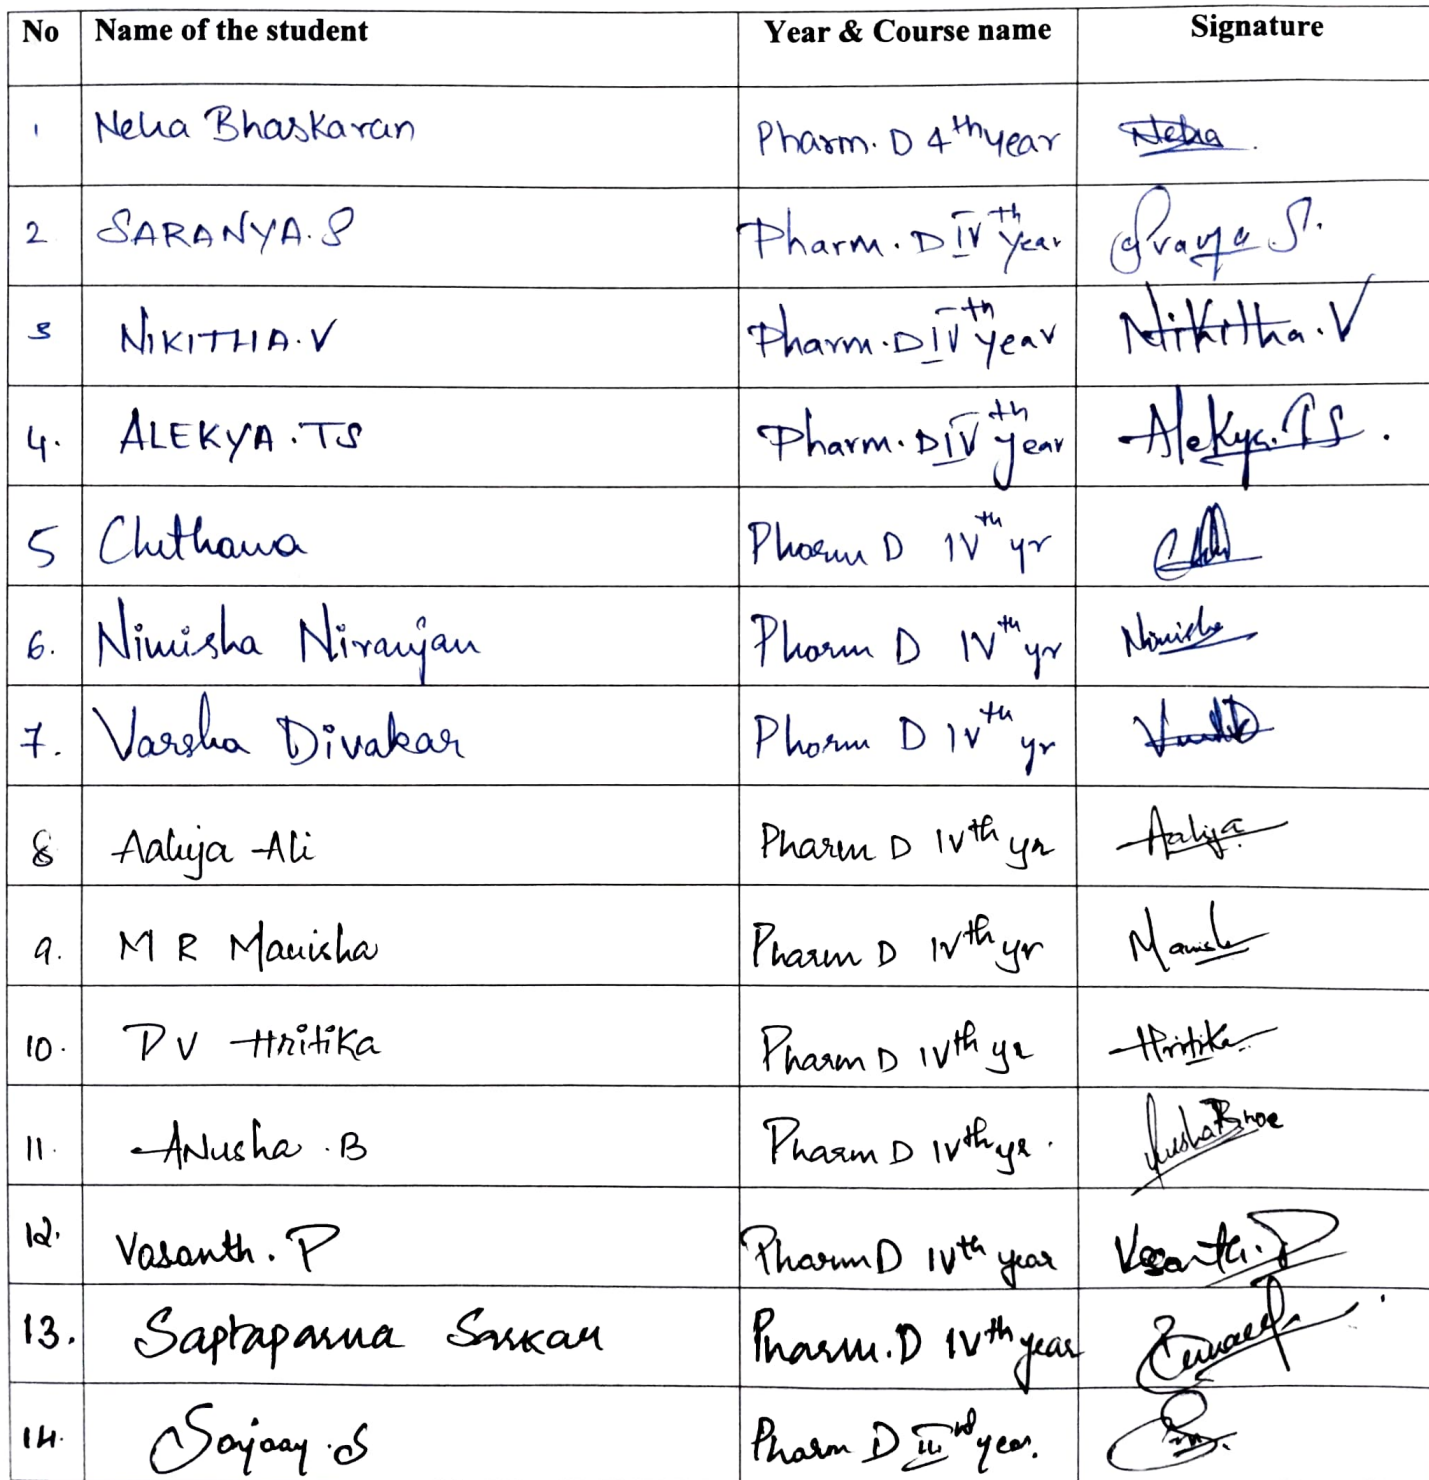 No Name of the student Year & Course name Signature
1 Neha Bhaskaran Pharm. D 4th year Neha
2 SARANYA.S Pharm. D IVth year
3 NIKITHA.V Pharm. D IVth year Nikitha.V
4. ALEKYA.TS Pharm. D IVth year Alekya.TS.
5 Chethana Pharm D IVth yr
6. Nimisha Niranjan Pharm D IVth yr Nimisha
7. Varsha Divakar Pharm D IVth yr
8 Aaliya Ali Pharm D IVth yr Aaliya
9. M R Manisha Pharm D IVth yr Manish
10. D V Hritika Pharm D IVth yr Hritika
11. Anusha .B Pharm D IVth yr.
12. Vasanth. P Pharm D IVth year Vasanth. P
13. Saptaparna Sarkar Pharm.D IVth year
14. Sanjaay .S Pharm D IIIrd year.